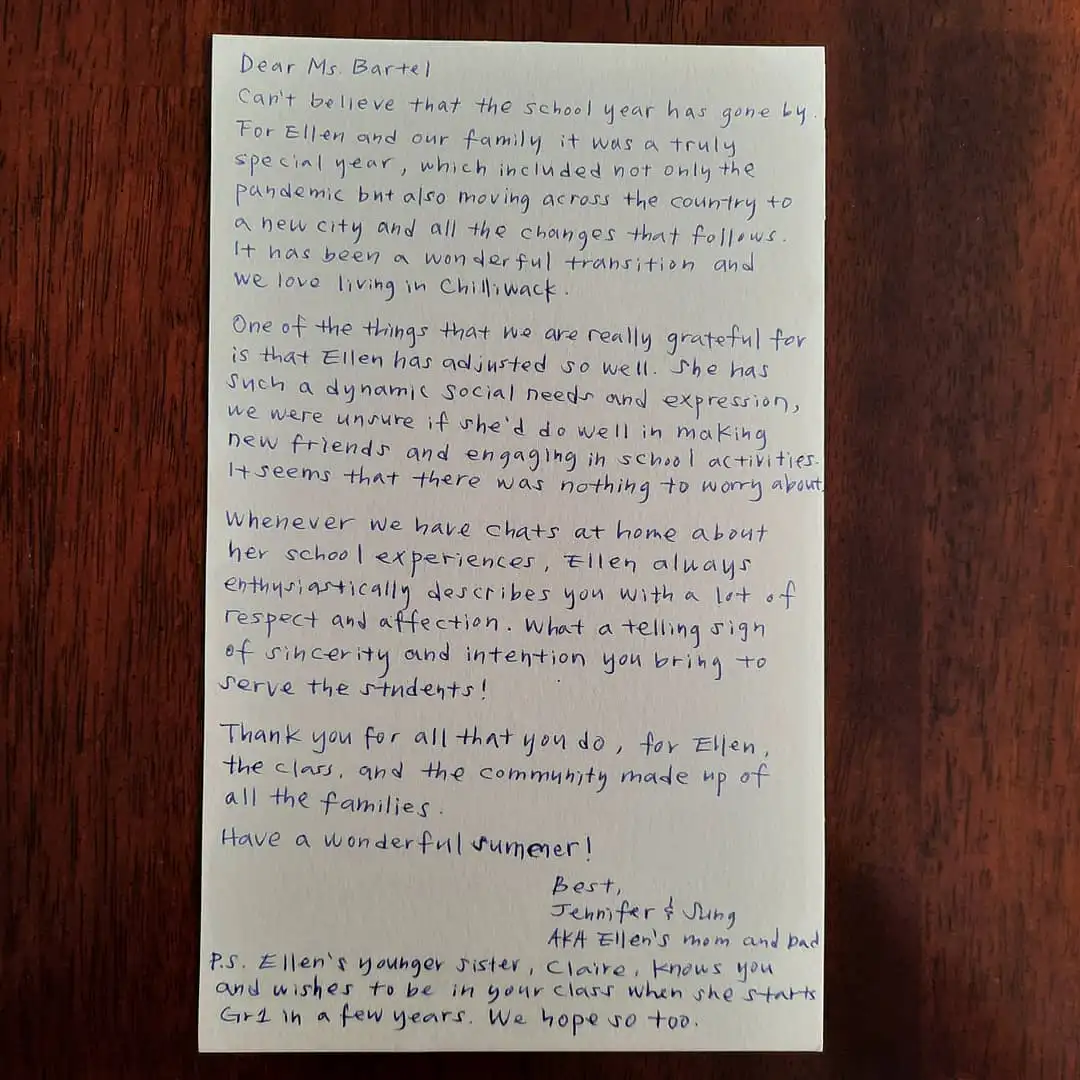 Dear Ms. Bartel
Can't believe that the school year has gone by.
For Ellen and our family it was a truly
special year, which included not only the
pandemic but also moving across the country to
a new city and all the changes that follows.
It has been a wonderful transition and
we love living in Chilliwack.
One of the things that we are really grateful for
is that Ellen has adjusted so well. She has
such a dynamic social needs and expression,
we were unsure if she'd do well in making
new friends and engaging in school activities.
It seems that there was nothing to worry about.
Whenever we have chats at home about
her school experiences, Ellen always
enthusiastically describes you with a lot of
respect and affection. What a telling sign
of sincerity and intention you bring to
serve the students!
Thank you for all that you do, for Ellen,
the class, and the community made up of
all the families.
Have a wonderful summer!
Best,
Jennifer & Sung
AKA Ellen's mom and dad
P.S. Ellen's younger sister, Claire, knows you
and wishes to be in your class when she starts
Gr1 in a few years. We hope so too.